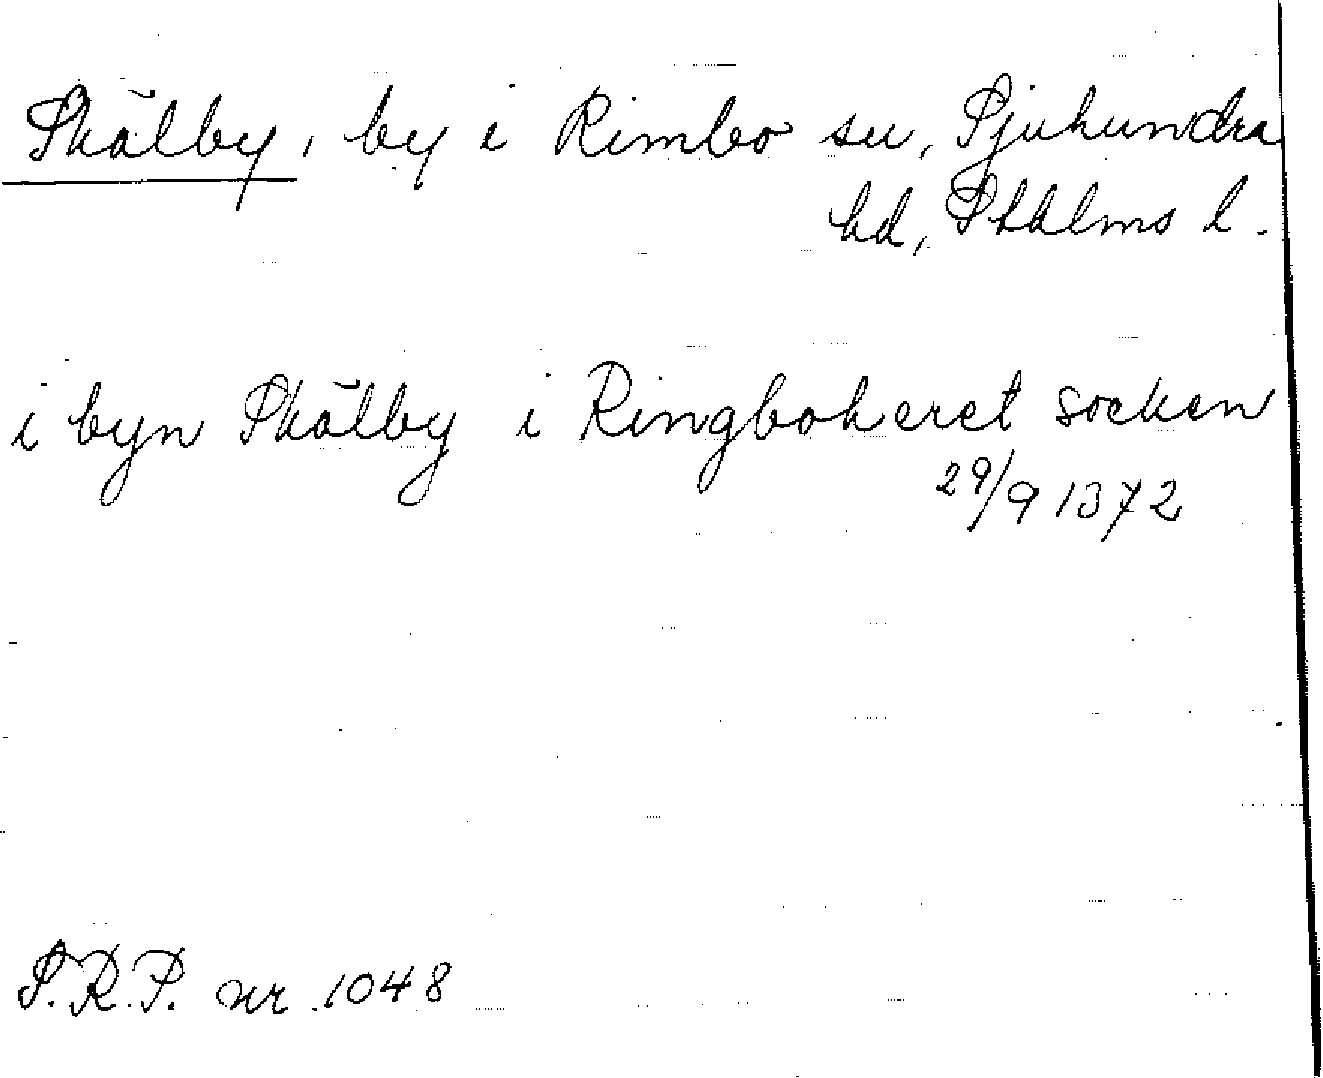 Skälby, by i Rimbo sn, Sjuhundra
hd, Sthlms l.
i byn Skälby i Ringbokeret socken
29/9 1372
S.R.P. nr 1048